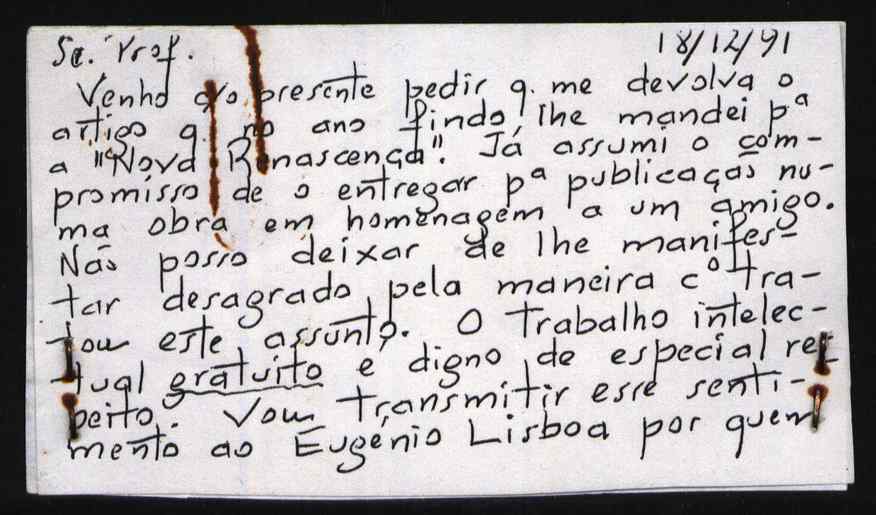 Sr. Prof. 18/12/91
Venho pelo presente pedir q. me devolva o
artigo q no ano findo lhe mandei pª
a "Nova Renascença". Já assumi o com-
promisso de o entregar pª publicação nu-
ma obra em homenagem a um amigo.
Não posso deixar de lhe manifes-
tar desagrado pela maneira cº tra-
tou este assunto. O trabalho intelec-
tual gratuito e digno de especial res-
peito. Vou transmitir esse senti-
mento ao Eugénio Lisboa por quem